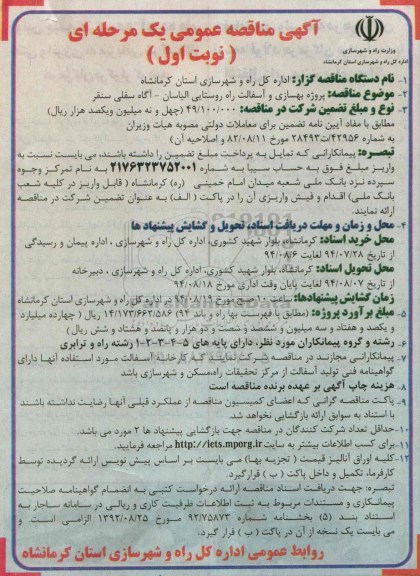 آگهی مناقصه عمومی یک مرحله ای
( نوبت اول )
وزارت راه و شهرسازی
اداره کل راه و شهرسازی استان کرمانشاه
۱- نام دستگاه مناقصه گزار: اداره کل راه و شهرسازی استان کرمانشاه
۲- موضوع مناقصه: پروژه بهسازی و آسفالت راه روستایی الیاسان - آگاه سفلی سنقر
۳- نوع و مبلغ تضمین شرکت در مناقصه: ۴۹/۱۰۰/۰۰۰ (چهل و نه میلیون ویکصد هزار ریال)
مطابق با مفاد آیین نامه تضمین برای معاملات دولتی مصوبه هیات وزیران
به شماره ۴۲۹۵۶/ت۲۸۴۹۳ مورخ ۸۲/۰۸/۱۱ و اصلاحیه آن)
تبصره: پیمانکارانی که تمایل به پرداخت مبلغ تضمین را داشته باشند، می بایست نسبت به
واریز مبلغ فوق به حساب سیبا به شماره ۲۱۷۶۴۲۳۷۵۲۰۰۱ به نام تمرکز وجوه
سپرده نزد بانک ملی شعبه میدان امام خمینی (ره) کرمانشاه ( قابل واریز در کلیه شعب
بانک ملی) اقدام و فیش واریزی آن را در پاکت ( الف ) به عنوان تضمین شرکت در مناقصه
ارائه نمایند.
۴- محل و زمان و مهلت دریافت اسناد، تحویل و گشایش پیشنهاد ها
محل خرید اسناد: کرمانشاه، بلوار شهید کشوری، اداره کل راه و شهرسازی ، اداره پیمان و رسیدگی
از تاریخ ۹۴/۰۷/۲۸ لغایت ۹۴/۰۸/۶
محل تحویل اسناد: کرمانشاه، بلوار شهید کشوری، اداره کل راه و شهرسازی ، دبیرخانه
از تاریخ ۹۴/۰۸/۰۷ لغایت پایان وقت اداری مورخ ۹۴/۰۸/۱۸
زمان گشایش پیشنهادها: ساعت ۱۰ صبح مورخ در اداره کل راه و شهرسازی استان کرمانشاه
۵- مبلغ برآورد پروژه: (مطابق با فهرست بها راه و باند ۹۴) ۱۴/۱۷۳/۶۶۲/۵۸۶ ریال ( چهارده میلیارد
و یکصد و هفتاد و سه میلیون و ششصد و شصت و دو هزار و پانصد و هشتاد و شش ریال )
۶- رشته و گروه پیمانکاران مورد نظر، دارای پایه های ۵-۴-۳-۲-۱ رشته راه و ترابری
۷- پیمانکارانی مجازند در مناقصه شرکت نمایند که کارخانه آسفالت مورد استفاده آنها دارای
گواهینامه فنی تولید آسفالت از مرکز تحقیقات راه،مسکن و شهرسازی باشد
۸- هزینه چاپ آگهی بر عهده برنده مناقصه است
۹- پاکت مناقصه گرانی که اعضای کمیسیون مناقصه از عملکرد قبلی آنها رضایت نداشته باشند
با استناد به سوابق ارائه بازگشایی نخواهد شد.
۱۰- حداقل تعداد شرکت کنندگان در مناقصه جهت بازگشایی پیشنهاد ها ۲ مورد می باشد.
۱۱- برای کسب اطلاعات بیشتر به سایت http://iets.mporg.ir مراجعه فرمایید.
۱۲- کلیه اوراق آنالیز قیمت ( تجزیه بها) می بایست بر اساس پیش نویس ارائه گردیده توسط
کارفرما، تکمیل و داخل پاکت ( ب ) قرار گیرد.
تبصره: جهت دریافت اسناد مناقصه ارائه درخواست کتبی به انضمام گواهینامه صلاحیت
پیمانکاری و مستندات مربوط به ثبت اطلاعات ظرفیت کاری و ریالی در سامانه ساجار به
استناد بند (۵) بخشنامه شماره ۹۲/۷۵۸۷۳ مورخ ۱۳۹۲/۰۸/۲۵ الزامی است. و
می بایست یک نسخه از آن در پاکت ( ب ) قرار گیرد.
روابط عمومی اداره کل راه و شهرسازی استان کرمانشاه